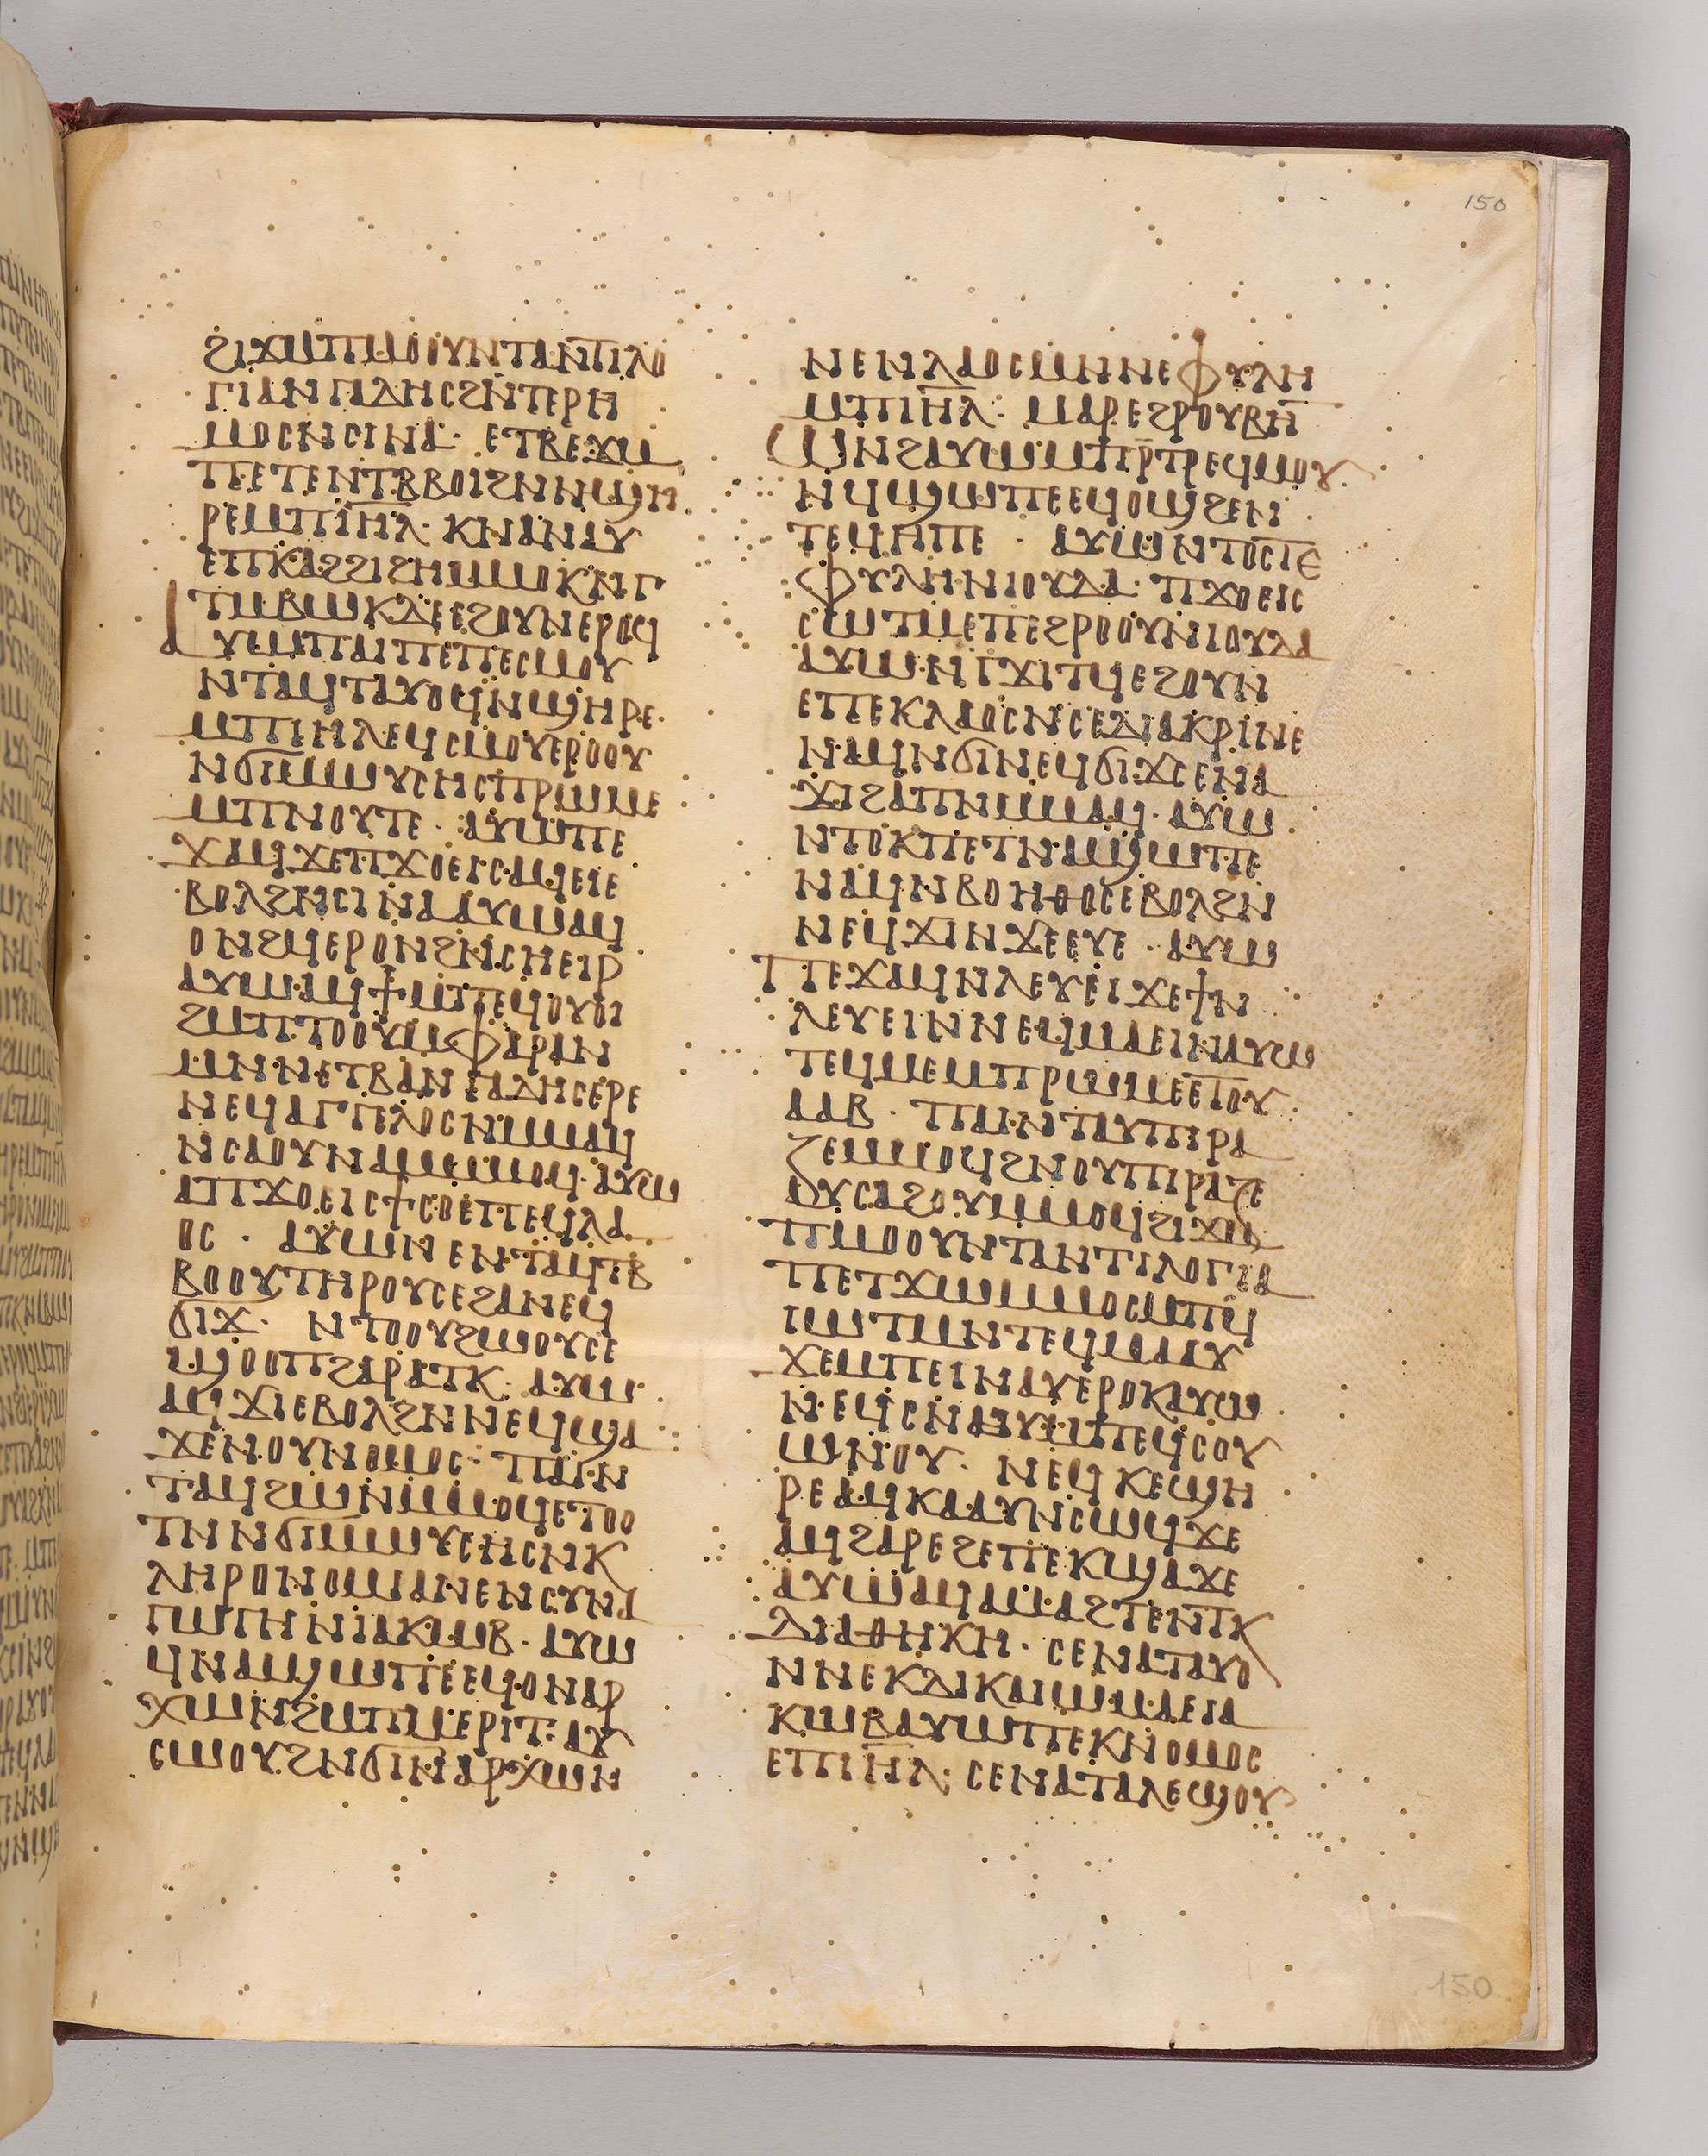 150
ϩⲓϫⲙⲡⲙⲟⲟⲩⲛⲧⲁⲛⲧⲓⲗⲟ
ⲅⲓⲁⲛⲕⲁⲇⲏⲥϩⲛⲧⲉⲣⲏ
ⲙⲟⲥⲛⲥⲓⲛⲁ· ⲉⲧⲃⲉϫⲙ
ⲡⲉⲧⲉⲛⲧⲃⲃⲟⲓϩⲛⲛϣⲏ
ⲣⲉⲙⲡⲓⲏⲗ· ⲕⲛⲁⲛⲁⲩ
ⲉⲡⲕⲁϩϩⲓϩⲏⲙⲙⲟⲕⲛⲅ
ⲧⲙⲃⲱⲕⲇⲉⲉϩⲟⲩⲛⲉⲣⲟϥ
ⲁⲩⲱⲡⲁⲓⲡⲉⲡⲉⲥⲙⲟⲩ
ⲛⲧⲁϥⲧⲁⲩⲟϥⲛϣⲏⲣⲉ·
ⲙⲡⲓⲏⲗⲉϥⲥⲙⲟⲩⲉⲣⲟⲟⲩ
ⲛϭⲓⲙⲱⲩⲥⲏⲥⲡⲣⲱⲙⲉ
ⲙⲡⲛⲟⲩⲧⲉ· ⲁⲩⲱⲡⲉ
ϫⲁϥϫⲉⲡϫⲟⲉⲓⲥⲁϥⲉⲓⲉ
ⲃⲟⲗϩⲛⲥⲓⲛⲁⲁⲩⲱⲁϥ
ⲟⲛϩϥⲉⲣⲟⲛϩⲛⲥⲏⲉⲓⲣ
ⲁⲩⲱⲁϥϯⲙⲡⲉϥⲟⲩⲟⲓ
ϩⲙⲡⲧⲟⲟⲩⲙⲫⲁⲣⲁⲛ
ⲙⲛⲛⲉⲧⲃⲁⲛⲕⲁⲇⲏⲥⲉⲣⲉ
ⲛⲉϥⲁⲅⲅⲉⲗⲟⲥⲛⲙⲙⲁϥ
ⲛⲥⲁⲟⲩⲛⲁⲙⲙⲙⲟϥ· ⲁⲩⲱ
ⲁⲡϫⲟⲉⲓⲥϯⲥⲟⲉⲡⲉϥⲗⲁ
ⲟⲥ · ⲁⲩⲱⲛⲉⲛⲧⲁϥⲧⲃ
ⲃⲟⲟⲩⲧⲏⲣⲟⲩⲥⲉϩⲁⲛⲉϥ
ϭⲓϫ· ⲛⲧⲟⲟⲩϩⲱⲟⲩⲥⲉ
ϣⲟⲟⲡϩⲁⲣⲁⲧⲕ· ⲁⲩⲱ
ⲁϥϫⲓⲉⲃⲟⲗϩⲛⲛⲉϥϣⲁ
ϫⲉⲛⲟⲩⲛⲟⲙⲟⲥ· ⲡⲁⲓⲛ
ⲧⲁϥϩⲱⲛⲙⲙⲟϥⲉⲧⲟⲟ
ⲧⲛⲛϭⲓⲙⲱⲩⲥⲏⲥⲛⲕ
ⲗⲏⲣⲟⲛⲟⲙⲓⲁⲛⲉⲛⲥⲩⲛⲁ
ⲅⲱⲅⲏⲛⲓⲁⲕⲱⲃ· ⲁⲩⲱ
ϥⲛⲁϣⲱⲡⲉⲉϥⲟⲛⲁⲣ
ⲭⲱⲛϩⲙⲡⲙⲉⲣⲓⲧ· ⲁⲩ
ⲥⲱⲟⲩϩⲛϭⲓⲛⲁⲣⲭⲱⲛ
ⲛⲉⲛⲗⲁⲟⲥⲙⲛⲛⲉⲫⲩⲗⲏ
ⲙⲡⲓⲏⲗ· ⲙⲁⲣⲉϩⲣⲟⲩⲃⲏ
ⲱⲛϩⲁⲩⲱⲙⲡⲣⲧⲣⲉϥⲙⲟⲩ
ⲛϥϣⲱⲡⲉⲉϥⲟϣϩⲉⲛ
ⲧⲉϥⲏⲡⲉ · ⲁⲩⲱⲛⲧⲟⲥⲧⲉ
ⲫⲩⲗⲏⲛⲓⲟⲩⲇⲁ· ⲡϫⲟⲉⲓⲥ
ⲥⲱⲧⲙⲉⲡⲉϩⲣⲟⲟⲩⲛⲓⲟⲩⲇⲁ
ⲁⲩⲱⲛⲅϫⲓⲧϥⲉϩⲟⲩⲛ
ⲉⲡⲉⲕⲗⲁⲟⲥⲛⲥⲉⲇⲓⲁⲕⲣⲓⲛⲉ
ⲛⲁϥⲛϭⲓⲛⲉϥϭⲓϫⲥⲉⲛⲁ
ϫⲓϩⲁⲡⲛⲙⲙⲁϥ· ⲁⲩⲱ
ⲛⲧⲟⲕⲡⲉⲧⲛⲁϣⲱⲡⲉ
ⲛⲁϥⲛⲃⲟⲏⲑⲟⲥⲉⲃⲟⲗϩⲛ
ⲛⲉϥϫⲓⲛϫⲉⲉⲩⲉ· ⲁⲩⲱ
ⲡⲉϫⲁϥⲛⲗⲉⲩⲉⲓϫⲉϯⲛ
ⲗⲉⲩⲉⲓⲛⲛⲉϥⲙⲁⲉⲓⲛⲁⲩⲱ
ⲧⲉϥⲙⲉⲙⲡⲣⲱⲙⲉⲉⲧⲟⲩ
ⲁⲁⲃ· ⲡⲁⲓⲛⲧⲁⲩⲡⲓⲣⲁ
ⲍⲉⲙⲙⲟϥϩⲛⲟⲩⲡⲓⲣⲁⲍⲉ
ⲁⲩⲥⲁϩⲟⲩⲙⲙⲟϥϩⲓϫⲙ
ⲡⲙⲟⲟⲩⲛⲧⲁⲛⲧⲓⲗⲟⲅⲓⲁ
ⲡⲉⲧϫⲱⲙⲙⲟⲥⲙⲡϥ
ⲓⲱⲧⲙⲛⲧⲉϥⲙⲁⲁⲩ
ϫⲉⲙⲡⲉⲓⲛⲁⲩⲉⲣⲟⲕⲁⲩⲱ
ⲛⲉϥⲥⲛⲏⲩⲙⲡⲉϥⲥⲟⲩ
ⲱⲛⲟⲩ· ⲛⲉϥⲕⲉϣⲏ
ⲣⲉⲁϥⲕⲁⲁⲩⲛⲥⲱϥϫⲉ
ⲁϥϩⲁⲣⲉϩⲉⲡⲉⲕϣⲁϫⲉ
ⲁⲩⲱⲁϥⲁⲙⲁϩⲧⲉⲛⲧⲕ
ⲇⲓⲁⲑⲏⲕⲏ· ⲥⲉⲛⲁⲧⲁⲩⲟ
ⲛⲛⲉⲕⲇⲓⲕⲁⲓⲱⲙⲁⲉⲓⲁ
ⲕⲱⲃⲁⲩⲱⲡⲉⲕⲛⲟⲙⲟⲥ
ⲉⲡⲓⲏⲗ· ⲥⲉⲛⲁⲧⲁⲗⲉϣⲟⲩ
150